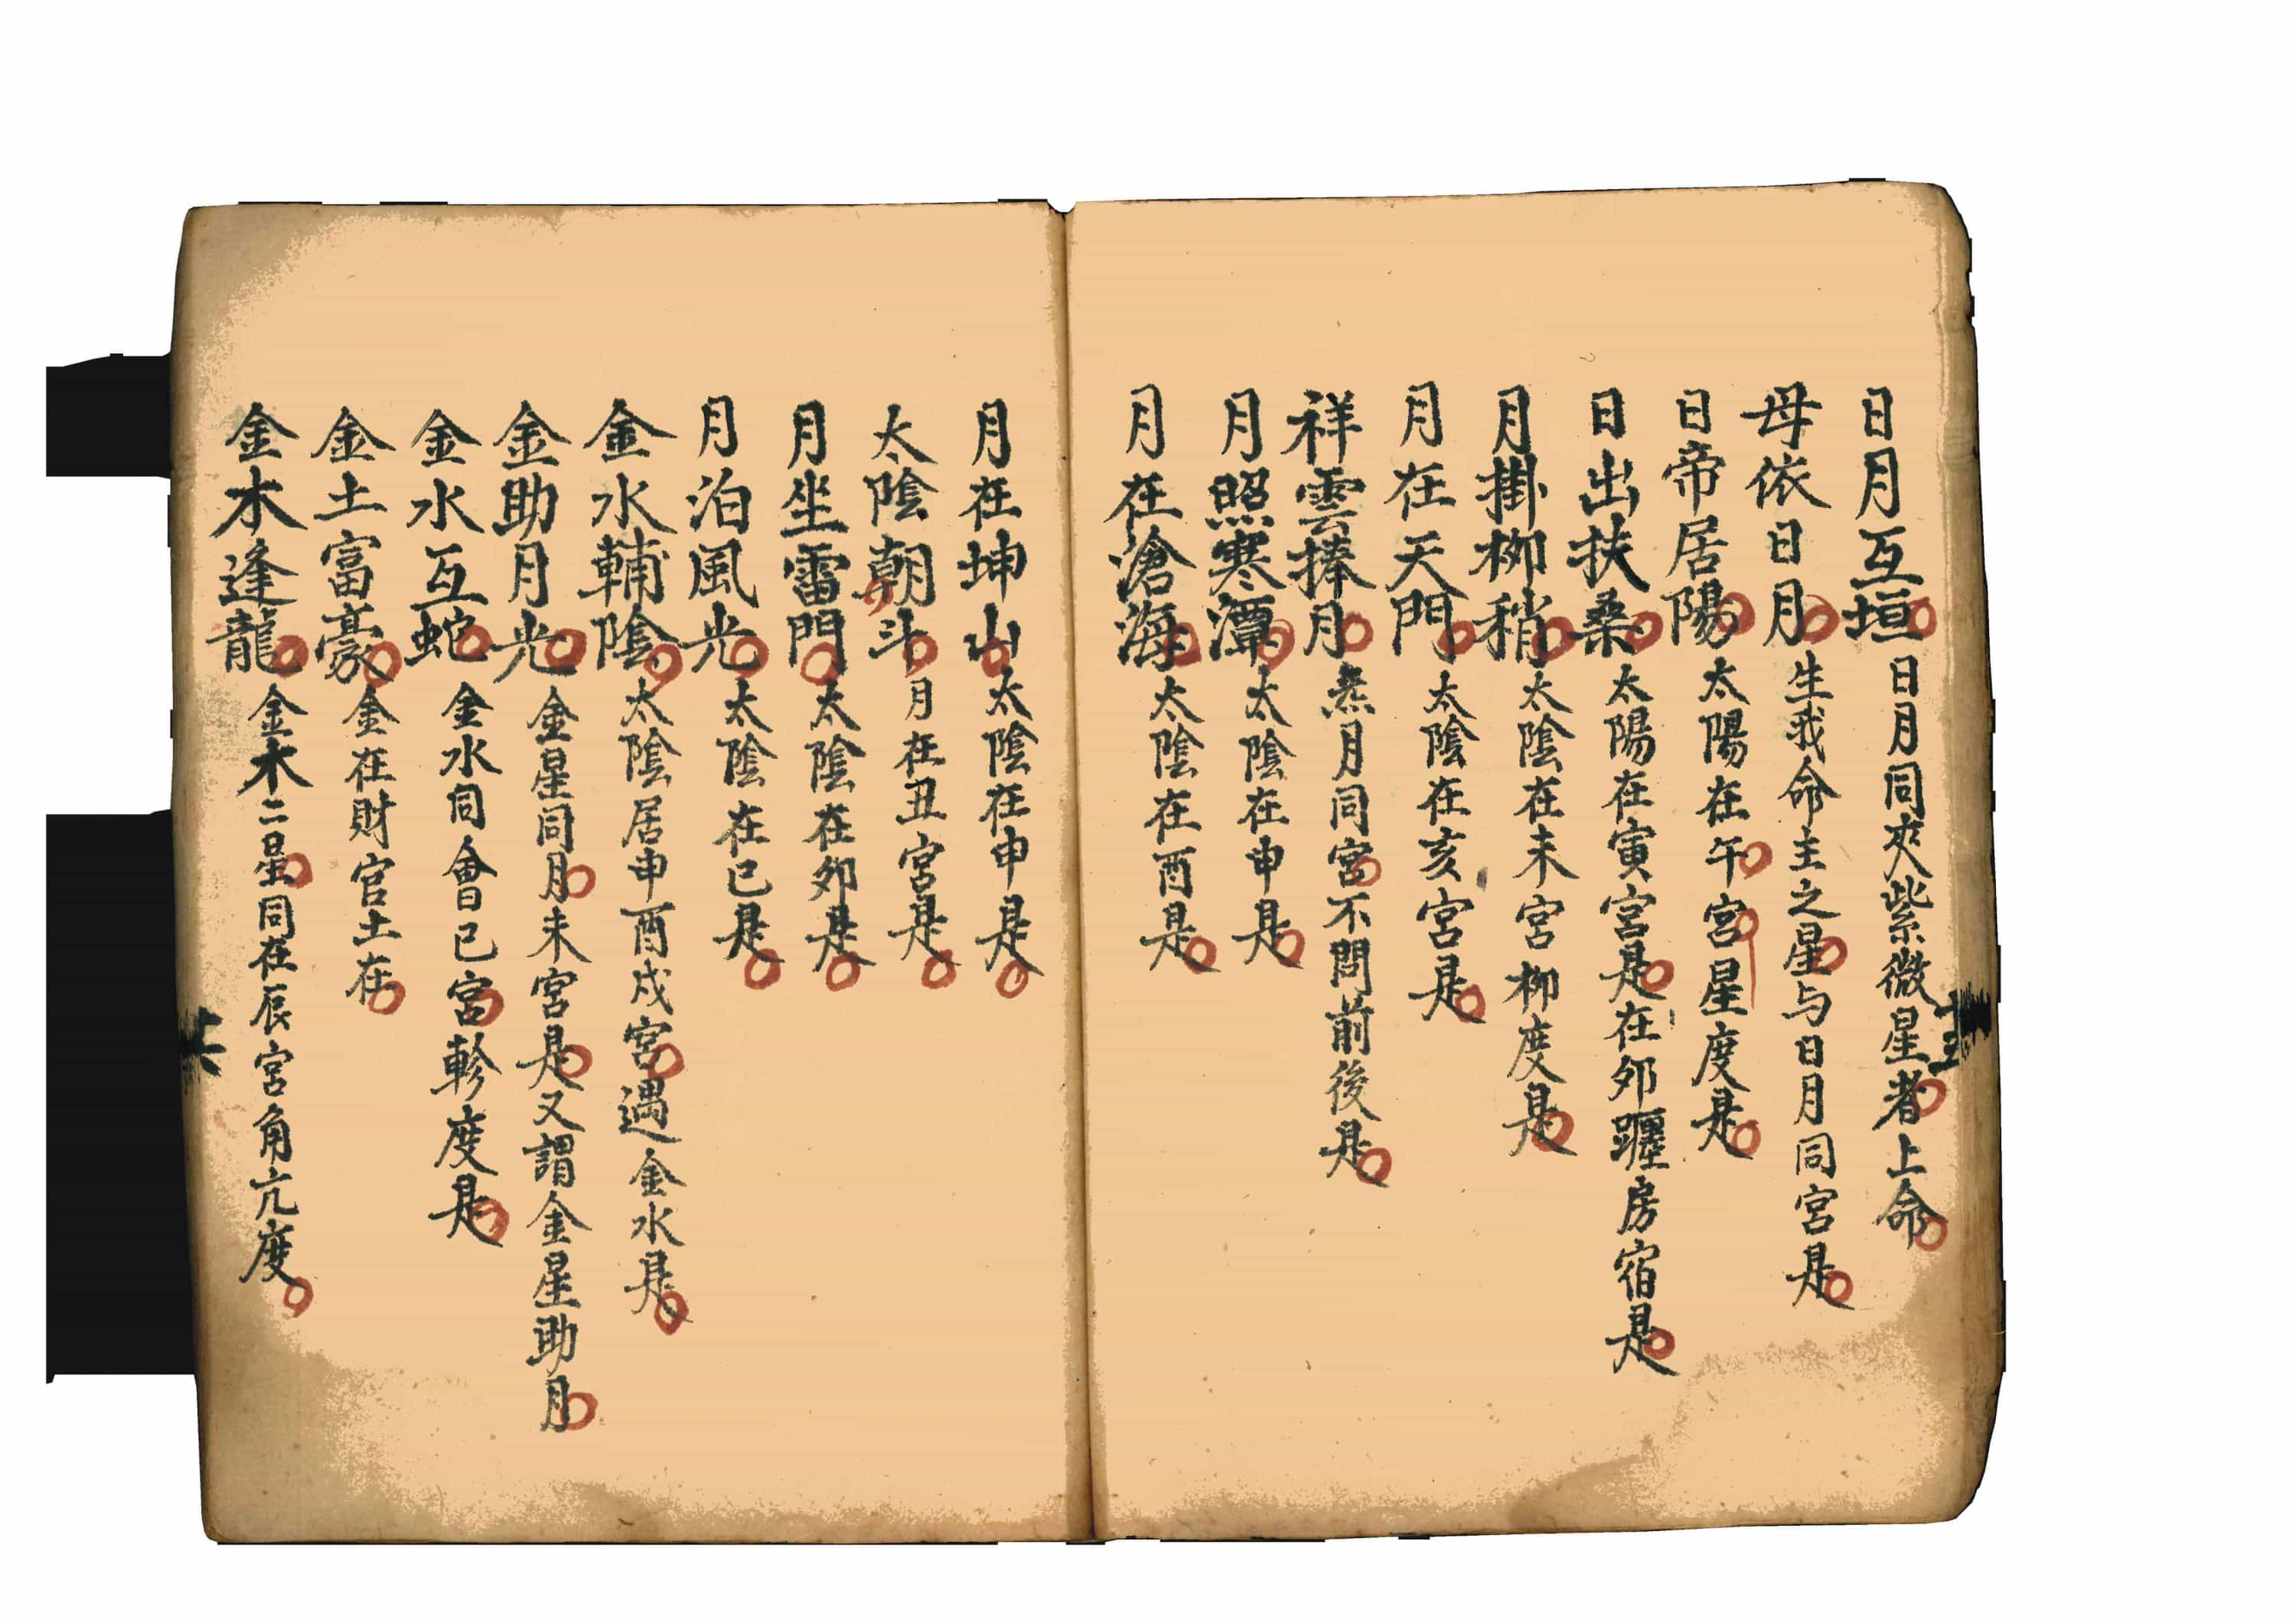 日月互垣日月同夾紫微星者上命
母依日月生我命主之星与日月同宮是
日帝居陽太陽在午宮星度是
日出扶桑太陽在寅宮是在卯躔房宿是
月掛柳稍太陰在未宮柳度是
月在天門太陰在亥宮是
祥雲捧月炁月同宮不問前後是
月照寒潭太陰在申是
月在滄海太陰在酉是
月在坤山太陰在申是
太陰朝斗月在丑宮是
月坐雷門太陰在卯是
月泊風光太陰在巳是
金水輔陰太陰居申酉戌宮遇金水是
金助月光金星同月未宮是又謂金星助月
金水互蛇金水同會巳宮軫度是
金土富豪金在財官土在
金木逢龍金木二星同在辰宮角亢度